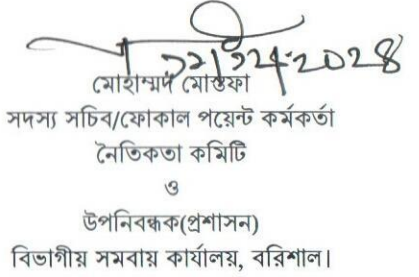 মোহাম্মদ মোস্তফা
সদস্য সচিব/ফোকাল পয়েন্ট কর্মকর্তা
নৈতিকতা কমিটি
ও
উপনিবন্ধক(প্রশাসন)
বিভাগীয় সমবায় কার্যালয়, বরিশাল।